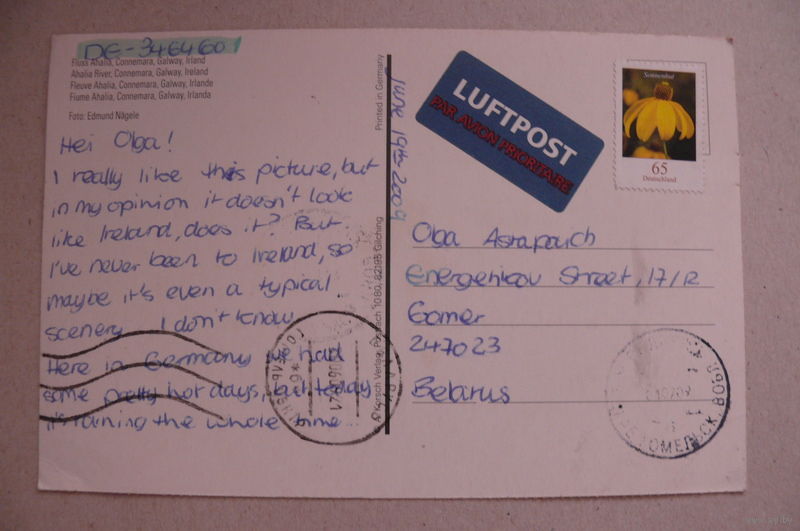 DE-346460
Fluss Ahalia, Connemara, Galway, Irland
Ahalia River, Connemara, Galway, Ireland
Fleuve Ahalia, Connemara, Galway, Irlande
Fiume Ahalia, Connemara, Galway, Irlanda
Foto: Edmund Nägele
Hei Olga!
I really like this picture, but
in my opinion it doesn't look
like Ireland, does it? But
I've never been to Ireland, so
maybe it's even a typical
scenery. I don't know.
Here in Germany we had
some pretty hot days, but today
it's raining the whole time
Printed in Germany
Korsch Verlag, Postfach 1080, 82195 Gilching
June 19th 2009
LUFTPOST
PAR AVION PRIORITAIRE
Sonnenhut
65
Deutschland
Olga Astapovich
Street, 17/12
Gomel
247023
Belarus